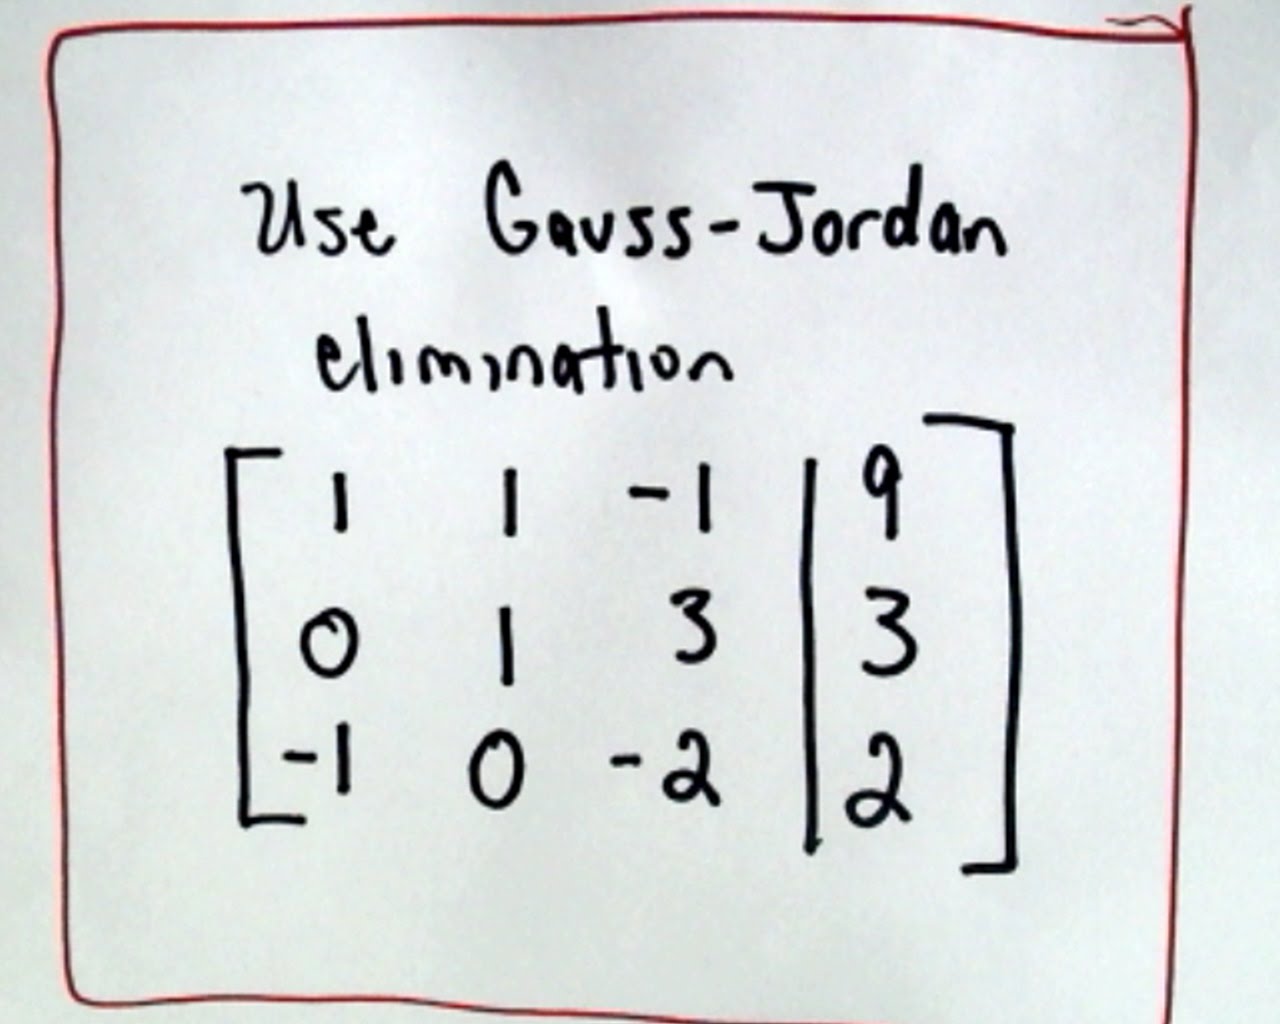 Use Gauss-Jordan
elimination
1 1 -1 | 9
0 1 3 | 3
-1 0 -2 | 2